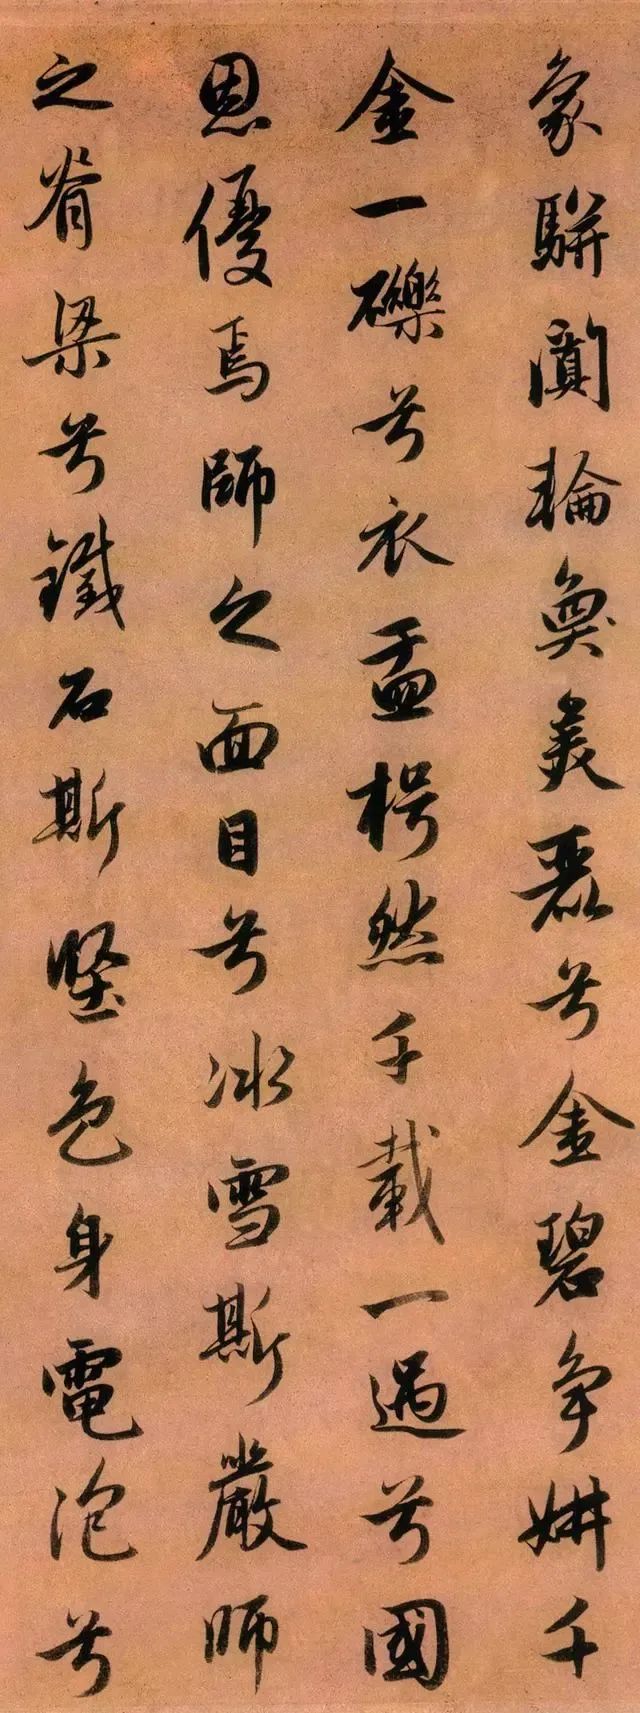 象駢闐輪奐美麗兮金碧争妍千
金一礫兮衣盂枵然千載一遇兮國
恩優焉師之面目兮冰雪斯嚴師
之脊梁兮鐵石斯堅色身電泡兮